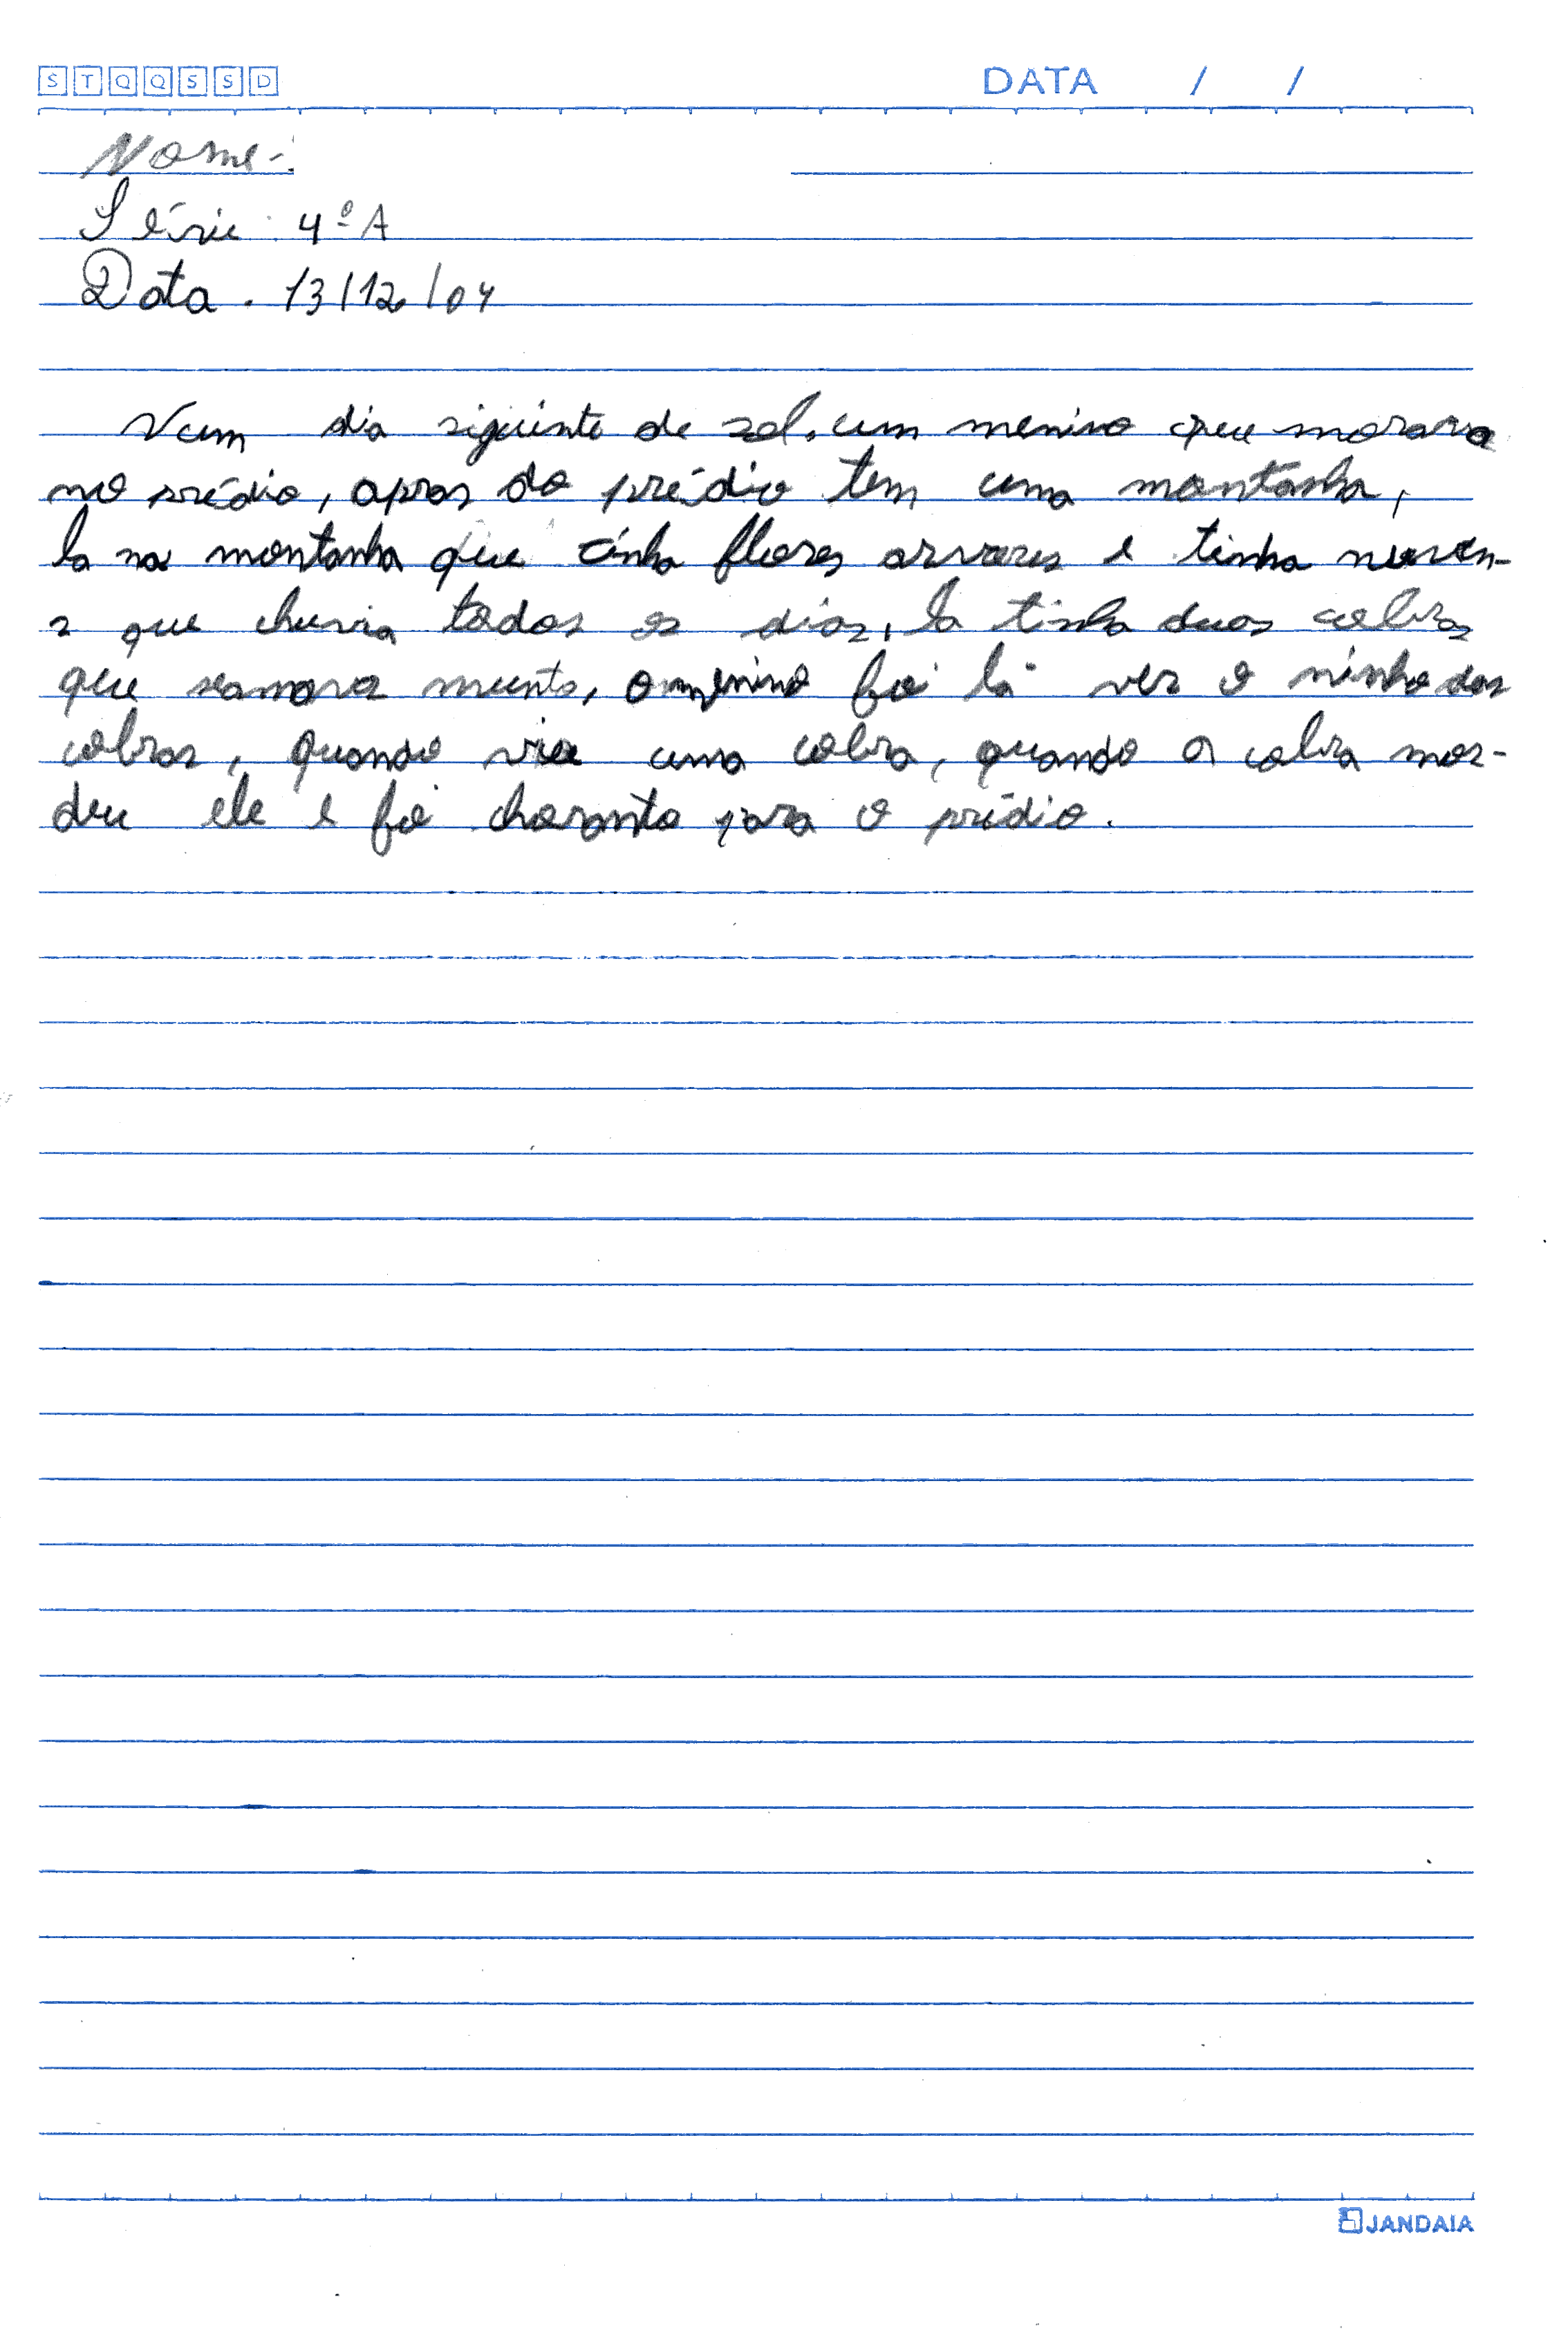 S T Q Q S S D DATA / /
Nome:
Série: 4º A
Data. 13/12/04
Num dia siguinte de sol, um menino que morava
no prédio, apros do prédio tem uma montanha,
la na montanha que tinha flores arvores e tinha nuven-
s que chuvia todos os dias, la tinha duas cobras
que seamava munto, o menino foi lá ver o ninho das
cobras, quando viu uma cobra, quando a cobra mor-
deu ele e foi choranto para o prédio.
JANDAIA